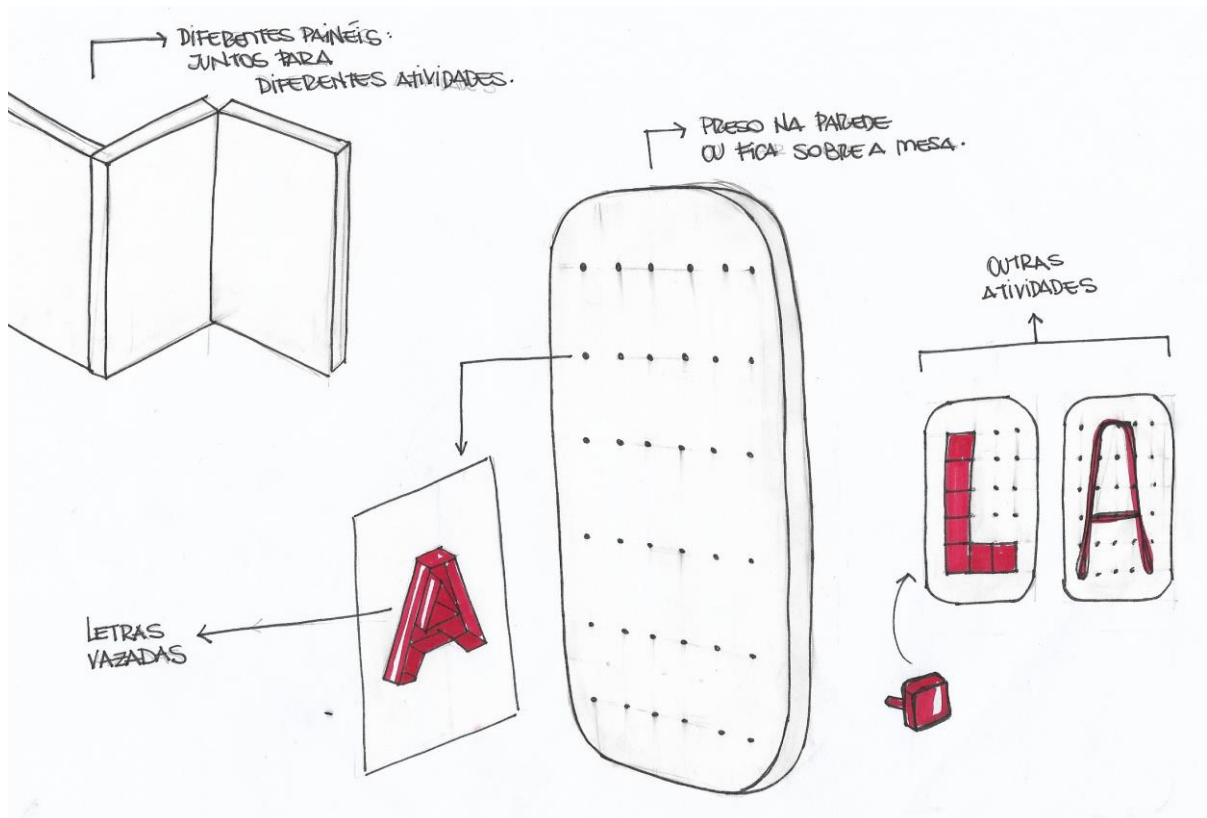 DIFERENTES PAINÉIS:
JUNTOS PARA
DIFERENTES ATIVIDADES.
PRESO NA PAREDE
OU FICA SOBRE A MESA.
OUTRAS
ATIVIDADES
LETRAS
VAZADAS
A
L
A